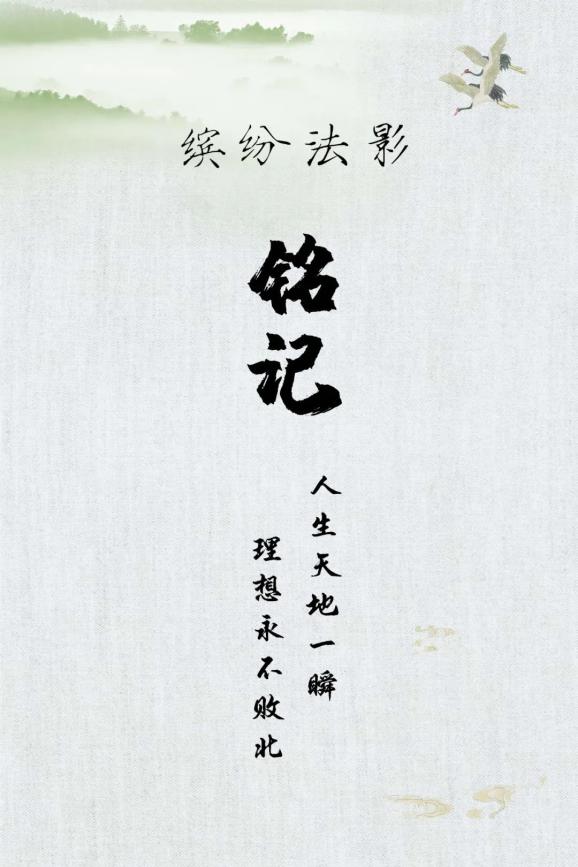 缤纷法影
铭记
人生天地一瞬
理想永不败北